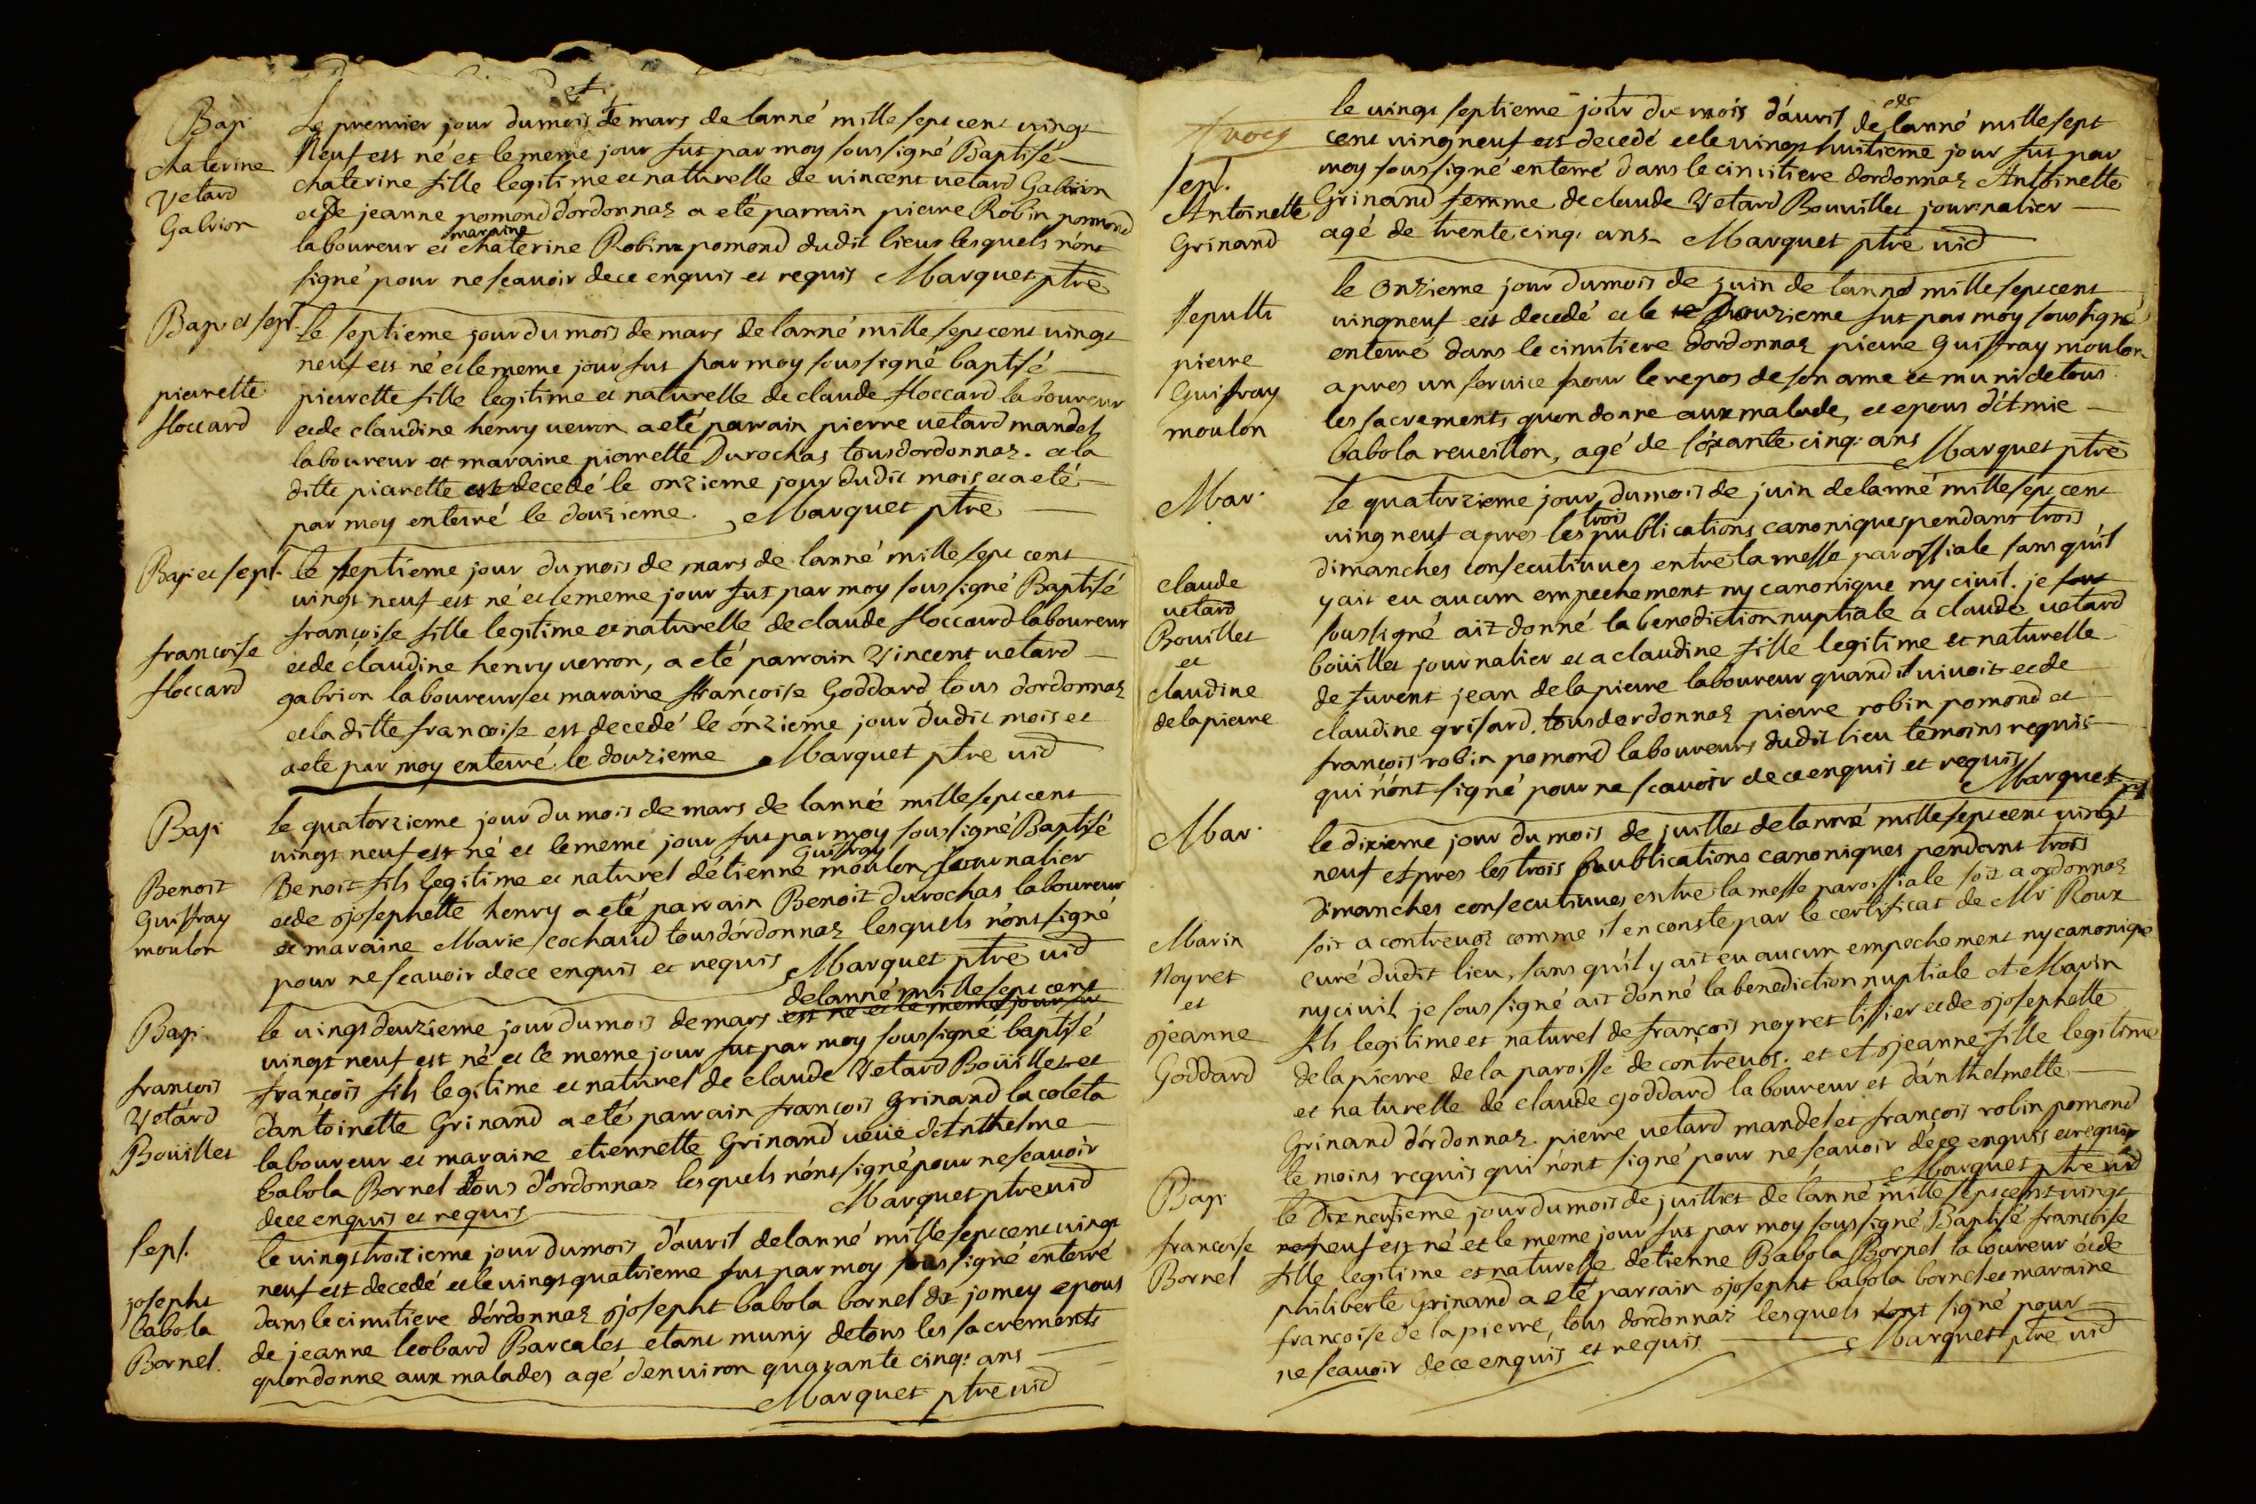 Bap
chaterine
Vetard
Gabrion
Le premier jour du mois de mars de lanné mille sept cent vingt
Neuf est né et le meme jour fut par moy sous signé Baptisé
chaterine fille legitime et naturelle de vincent vetard Gabrion
et de jeanne pomond dordonnaz a eté parrain pierre Robin pomond
laboureur et maraine chaterine Robin pomond dudit lieu lesquels nont
signé pour ne scavoir de ce enquis et requis Marquet ptre
Bap. et sept.
pierrette
floccard
Le septieme jour du mois de mars de lanné mille sept cent vingt
neuf est né et le meme jour fut par moy sous signé baptisé
pierrette fille legitime et naturelle de claude floccard laboureur
et de claudine henry verron a eté parrain pierre vetard mandel
laboureur et maraine pierrette Durochas tous dordonnaz. et la
ditte pierrette est decedé le onzieme jour dudit mois et a eté
par moy enterré le douzieme. Marquet ptre
Bap. et sept.
francoise
floccard
le septieme jour du mois de mars de lanné mille sept cent
vingt neuf est né et le meme jour fut par moy sous signé Baptisé
françoise fille legitime et naturelle de claude floccard laboureur
et de claudine henry verron, a eté parrain Vincent vetard
gabrion laboureur et maraine françoise Goddard tous dordonnaz
et la ditte francoise est decedé le ónzieme jour dudit mois et
a ete par moy enterré le douzieme Marquet ptre vic
Bap
Benoit
Guiffray
moulon
le quatorzieme jour du mois de mars de lanné mille sept cent
vingt neuf est né et le meme jour fut par moy sous signé Baptisé
Benoit fils legitime et naturel détienne Guiffray moulon Journalier
et de josephette henry a eté parrain Benoit Durochas laboureur
et maraine Marie cochaud tous dórdonnaz lesquels nónt signé
pour ne scavoir de ce enquis et requis Marquet ptre vic
Bap.
francois
Vetárd
Boüillet
le vingt deuzieme jour du mois de mars est né et le meme jour fut de lanné mille sept cent
vingt neuf est né et le meme jour fut par moy sous signé baptisé
françois fils legitime et naturel de claude Vetard Boüillet et
dántoinette Grinand a eté parrain francois Grinand lacoleta
laboureur et maraine etiennette Grinand veüe dAnthelme
babola Bornel tous dordonnaz lesquels nónt signé pour ne scavoir
de ce enquis et requis Marquet ptre vic
sept.
josepht
babola
Bornel.
le vingt troizieme jour du mois dávril de lanné mille sept cent vingt
neuf est decedé et le vingt quatrieme fut par moy sous signé enterré
dans le cimitiere dórdonnaz josepht babola bornel dit jomey epous
de jeanne leobard Barcalet etant muny de tous les sacrements
quon donne aux malades agé denviron quarante cinq: ans
Marquet ptre vic
sept.
Antoinette
Grinand
le vingt septieme jour du mois dávril de lanné mille sept
cent vingneuf est decedé et le vingt huitieme jour fut par
moy sous signé enterré dans le cimitiere dordonnaz Antoinette
Grinand femme de claude Vetard Bouvillet journalier
agé de trente cinq: ans. Marquet ptre vic
sepult:
pierre
Guiffray
moulon
le onzieme jour du mois de juin de lanné mille sept cent
vingneuf est decedé et le Douzieme fut par moy sous signé
enterré dans le cimitiere dordonnaz pierre Guiffray moulon
apres un service pour le repos de son ame et muni de tous
les sacrements quon donne aux malade, et epous détmie
babola reveillon, agé de soixante cinq: ans Marquet ptre
Mar.
claude
vetard
Bouillet
et
claudine
de la pierre
le quatorzieme jour du mois de juin de lanné mille sept cent
vingneuf apres les trois publications canoniques pendant trois
dimanches consecutiuues entre la messe paroissiale sans quil
y ait eu aucun empechement ny canonique ny civil. je sous
soussigné ait donné la benediction nuptiale a claude vetard
boüillet journalier et a claudine fille legitime et naturelle
de furent jean de la pierre laboureur quand il vivoit et de
claudine grisard. tous dordonnaz pierre robin pomond et
françois robin pomond laboureurs dudit lieu temoins requis
qui nónt signé pour ne scavoir de ce enquis et requis Marquet
Mar.
Marin
Noyret
et
jeanne
Goddard
le dixieme jour du mois de juillet de lanné mille sept cent vingt
neuf et pres les trois publications canoniques pendant trois
dimanches consecutiuues entre la messe paroissiale soit a ordonnaz
soit a contrevoz comme il en conste par le certificat de Mr Roux
curé dudit lieu, sans quil y ait eu aucun empechement ny canonique
ny civil je sous signé ait donné la benediction nuptiale et Marin
fils legitime et naturel de françois noyret tissier et de josephette
de la pierre de la paroisse de contrevoz. et et jeanne fille legitime
et naturelle de claude Goddard laboureur et dánthelmette
Grinand dórdonnaz. pierre vetard mandel et françois robin pomond
te moins requis qui nónt signé pour ne scavoir déce enquis et requis
Marquet ptre vic
Bap.
francoise
Bornel
le Dix neufieme jour du mois de juilliet de lanné mille sept cent vingt
neuf est né et le meme jour fut par moy sous signé Baptisé françoise
fille legitime et naturelle détienne Babola Bornel laboureur et de
philiberte Grinand a eté parrain josepht babola bornel et maraine
françoise de la pierre, tous dordonnaz lesquels nont signé pour
ne scavoir de ce enquis et requis Marquet ptre vic